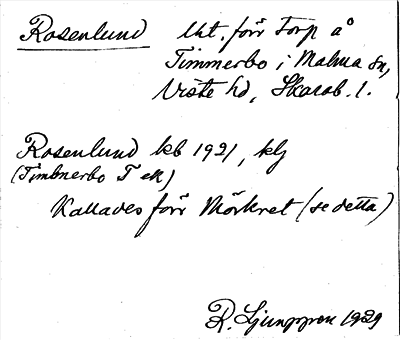 Rosenlund Uht, förr Torp å
Timmerbo i Malma sn,
Viste hd, Skarab. l.
Rosenlund kb 1921, klj
(Timmerbo T ek)
Kallades förr Mörkret (se detta)
R. Ljunggren 1929